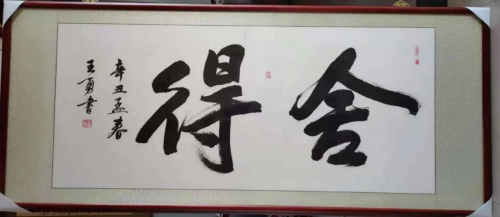 舍得
辛丑孟春
王勇書